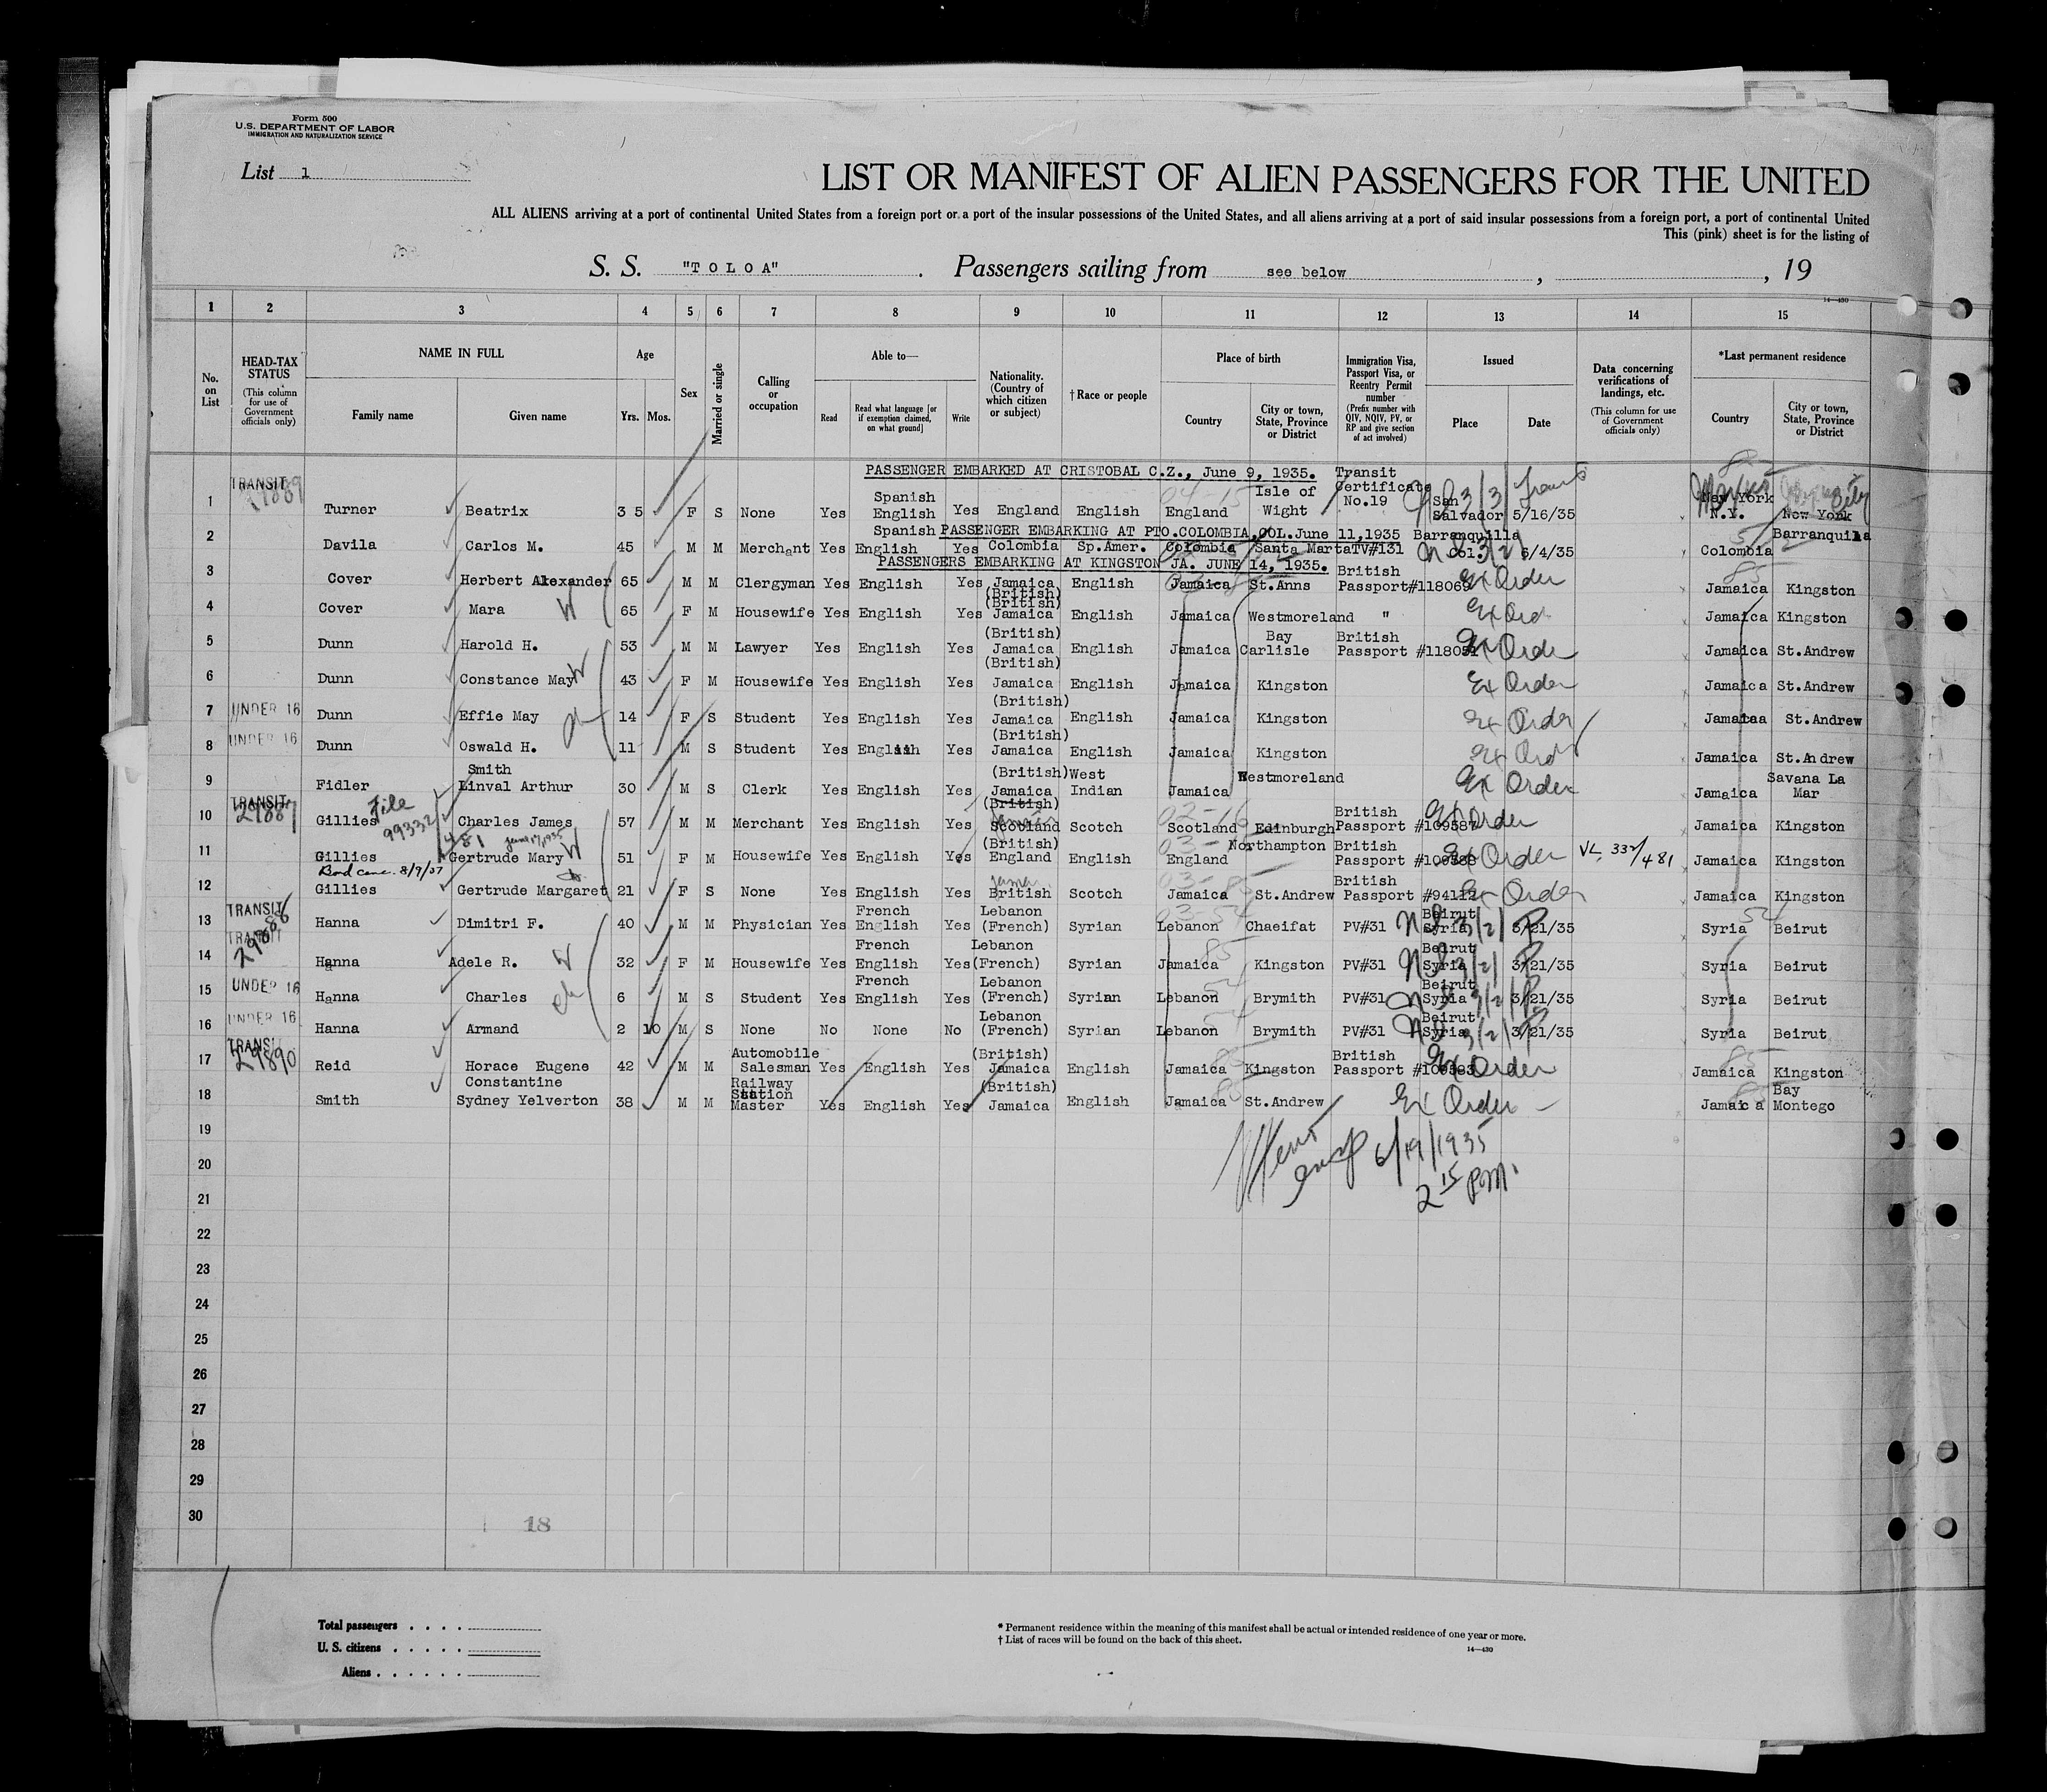 Form 500
U.S. DEPARTMENT OF LABOR
IMMIGRATION AND NATURALIZATION SERVICE
List 1
LIST OR MANIFEST OF ALIEN PASSENGERS FOR THE UNITED
ALL ALIENS arriving at a port of continental United States from a foreign port or a port of the insular possessions of the United States, and all aliens arriving at a port of said insular possessions from a foreign port, a port of continental United
This (pink) sheet is for the listing of
S. S. "TOLOA" . Passengers sailing from see below , , 19
14—430
1 2 3 4 5 6 7 8 9 10 11 12 13 14 15
No. on List
HEAD-TAX STATUS (This column for use of Government officials only)
NAME IN FULL Family name Given name
Age Yrs. Mos.
Sex
Married or single
Calling or occupation
Able to— Read Read what language [or if exemption claimed, on what ground] Write
Nationality. (Country of which citizen or subject)
†Race or people
Place of birth Country City or town, State, Province or District
Immigration Visa, Passport Visa, or Reentry Permit number (Prefix number with QIV, NQIV, PV, or RP and give section of act involved)
Issued Place Date
Data concerning verifications of landings, etc. (This column for use of Government officials only)
*Last permanent residence Country City or town, State, Province or District
PASSENGER EMBARKED AT CRISTOBAL C.Z., June 9, 1935.
1 TRANSIT 29889 Turner Beatrix 35 F S None Yes Spanish English Yes England English England Isle of Wight Transit Certificate No.19 San Salvador 5/16/35 New York N.Y. New York
PASSENGER EMBARKING AT PTO.COLOMBIA,COL.June 11,1935
2 Davila Carlos M. 45 M M Merchant Yes Spanish English Yes Colombia Sp.Amer. Colombia Santa Marta TV#131 Barranquilla Col. 6/4/35 Colombia Barranquila
PASSENGERS EMBARKING AT KINGSTON JA. JUNE 14, 1935.
3 Cover Herbert Alexander 65 M M Clergyman Yes English Yes Jamaica (British) English Jamaica St.Anns British Passport#118069 Ex Order Jamaica Kingston
4 Cover Mara W 65 F M Housewife Yes English Yes (British) Jamaica English Jamaica Westmoreland " Ex Ord Jamaica Kingston
5 Dunn Harold H. 53 M M Lawyer Yes English Yes (British) Jamaica English Jamaica Bay Carlisle British Passport Ex Order Jamaica St.Andrew
6 Dunn Constance May W 43 F M Housewife Yes English Yes (British) Jamaica English Jamaica Kingston Ex Order Jamaica St.Andrew
7 UNDER 16 Dunn Effie May 14 F S Student Yes English Yes (British) Jamaica English Jamaica Kingston Ex Order Jamacaa St.Andrew
8 UNDER 16 Dunn Oswald H. 11 M S Student Yes English Yes (British) Jamaica English Jamaica Kingston Ex Ord Jamaica St.Andrew
9 Fidler Smith Linval Arthur 30 M S Clerk Yes English Yes (British) Jamaica West Indian Jamaica Westmoreland Ex Order Jamaica Savana La Mar
10 TRANSIT 29887 Gillies File 99332/481 Charles James 57 M M Merchant Yes English Yes (British) Scotland Scotch Scotland 02-16 Edinburgh British Passport #109587 Ex Order Jamaica Kingston
11 Gillies Gertrude Mary W 51 F M Housewife Yes English Yes (British) England English England Northampton British Passport Ex Order VL 332/481 Jamaica Kingston
Bond canc. 8/9/37
12 Gillies Gertrude Margaret 21 F S None Yes English Yes British Scotch Jamaica St.Andrew British Passport #94112 Ex Order Jamaica Kingston
13 TRANSIT 29888 Hanna Dimitri F. 40 M M Physician Yes French English Yes Lebanon (French) Syrian Lebanon Chaeifat PV#31 Beirut Syria 3/21/35 Syria Beirut
14 TRANSIT Hanna Adele R. W 32 F M Housewife Yes French English Yes Lebanon (French) Syrian Jamaica Kingston PV#31 Beirut Syria 3/21/35 Syria Beirut
15 UNDER 16 Hanna Charles ch 6 M S Student Yes French English Yes Lebanon (French) Syrian Lebanon Brymith PV#31 Beirut Syria 3/21/35 Syria Beirut
16 UNDER 16 Hanna Armand 2 10 M S None No None No Lebanon (French) Syrian Lebanon Brymith PV#31 Beirut Syria 3/21/35 Syria Beirut
17 TRANSIT 29890 Reid Horace Eugene 42 M M Automobile Salesman Yes English Yes (British) Jamaica English Jamaica Kingston British Passport #109583 Ex Order Jamaica Kingston
18 Smith Constantine Sydney Yelverton 38 M M Railway Station Master Yes English Yes (British) Jamaica English Jamaica St.Andrew Ex Order Jamaica Bay Montego
6/19/1935
2 15 P.M.
19
20
21
22
23
24
25
26
27
28
29
30
18
Total passengers
U. S. citizens
Aliens
* Permanent residence within the meaning of this manifest shall be actual or intended residence of one year or more.
† List of races will be found on the back of this sheet.
14—430